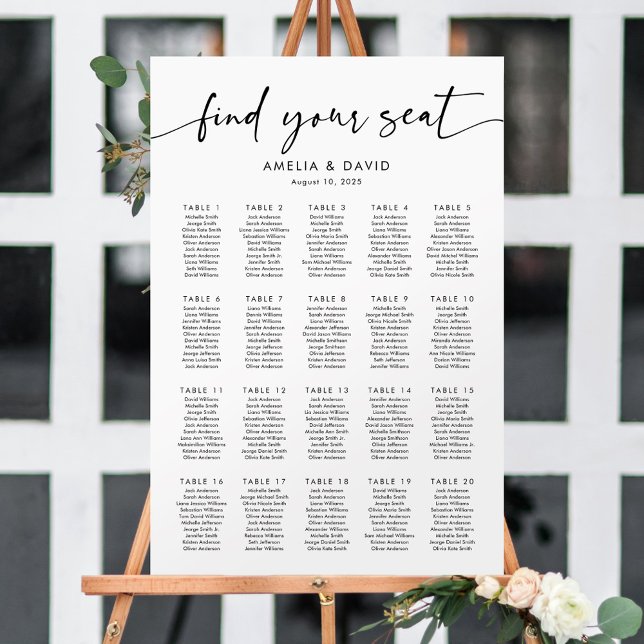 find your seat
AMELIA & DAVID
August 10, 2025
TABLE 1
Michelle Smith
Jeorge Smith
Olivia Kate Smith
Kristen Anderson
Oliver Anderson
Jack Anderson
Sarah Anderson
Liana Williams
Seth Williams
David Williams
TABLE 2
Jack Anderson
Sarah Anderson
Liana Jessica Williams
Sebastian Williams
David Williams
Michelle Smith
Jeorge Smith Jr.
Jennifer Smith
Kristen Anderson
Oliver Anderson
TABLE 3
David Williams
Michelle Smith
Jeorge Smith
Olivia Maria Smith
Jennifer Anderson
Sarah Anderson
Liana Smith
Sam Michael Williams
Kristen Anderson
Oliver Anderson
TABLE 4
Jack Anderson
Sarah Anderson
Liana Williams
Sebastian Williams
Kristen Anderson
Oliver Anderson
Alexander Williams
Michelle Smith
Jeorge Daniel Smith
Olivia Kate Smith
TABLE 5
Jack Anderson
Sarah Anderson
Liana Williams
Alexander Williams
Kristen Anderson
Oliver Jason Anderson
David Mitchel Williams
Michelle Smith
Jennifer Smith
Olivia Nicole Smith
TABLE 6
Sarah Anderson
Liana Williams
Jennifer Williams
Kristen Anderson
Oliver Anderson
David Williams
Michelle Smith
Jeorge Jefferson
Anna Luisa Smith
Jack Anderson
TABLE 7
Liana Williams
Dennis Williams
David Williams
Michelle Smith
Jennifer Anderson
Jack Anderson
Sarah Anderson
Olivia Jefferson
Kristen Anderson
Oliver Anderson
TABLE 8
Jack Anderson
Sarah Anderson
Liana Williams
Alexander Jefferson
David Jason Williams
Michelle Smithson
Jeorge Smithson
Olivia Jefferson
Kristen Anderson
Oliver Anderson
TABLE 9
Michelle Smith
Jeorge Michael Smith
Olivia Nicole Smith
Kristen Anderson
Oliver Anderson
Jack Anderson
Sarah Anderson
Rebecca Williams
Seth Jefferson
Jennifer Williams
TABLE 10
Kristen Anderson
Oliver Anderson
Olivia Jefferson
David Williams
Miranda Smith
Jack Anderson
Sarah Anderson
Ann Nicole Williams
Dorian Williams
David Williams
TABLE 11
David Williams
Michelle Smith
Jeorge Smith
Olivia Smith
Jack Anderson
Sarah Anderson
Lana Ann Williams
Maksimilian Williams
Kristen Anderson
Oliver Anderson
TABLE 12
Jack Anderson
Sarah Anderson
Liana Williams
Sebastian Williams
Kristen Anderson
Oliver Anderson
Alexander Williams
Michelle Smith
Jeorge Daniel Smith
Olivia Kate Smith
TABLE 13
Jack Anderson
Sarah Anderson
Lia Jessica Williams
Sebastian Williams
David Williams
Michelle Ann Smith
Jeorge Smith Jr.
Jennifer Smith
Kristen Anderson
Oliver Anderson
TABLE 14
Jennifer Anderson
Sarah Anderson
Liana Williams
Alexander Jefferson
David Jason Williams
Michelle Smithson
Jeorge Smithson
Olivia Jefferson
Kristen Anderson
Oliver Anderson
TABLE 15
David Williams
Michelle Smith
Jeorge Smith
Olivia Smith
Jack Anderson
Sarah Anderson
Liana Williams
Michael Williams Jr.
Kristen Anderson
Oliver Anderson
TABLE 16
Jack Anderson
Sarah Anderson
Liana Jessica Williams
Sebastian Williams
Tom David Williams
Michelle Jefferson
Jeorge Smith Jr.
Jennifer Smith
Kristen Anderson
Oliver Anderson
TABLE 17
Michelle Smith
Jeorge Michael Smith
Olivia Nicole Smith
Kristen Anderson
Oliver Anderson
Jack Anderson
Sarah Anderson
Rebecca Williams
Seth Jefferson
Jennifer Williams
TABLE 18
Jack Anderson
Sarah Anderson
Liana Williams
Sebastian Williams
Kristen Anderson
Oliver Anderson
Alexander Williams
Michelle Smith
Jeorge Daniel Smith
Olivia Kate Smith
TABLE 19
David Williams
Michelle Smith
Jeorge Smith
Olivia Maria Smith
Jennifer Anderson
Sarah Anderson
Liana Williams
Sam Michael Williams
Kristen Anderson
Oliver Anderson
TABLE 20
Jack Anderson
Sarah Anderson
Liana Williams
Sebastian Williams
Kristen Anderson
Oliver Anderson
Alexander Williams
Michelle Smith
Jeorge Daniel Smith
Olivia Kate Smith